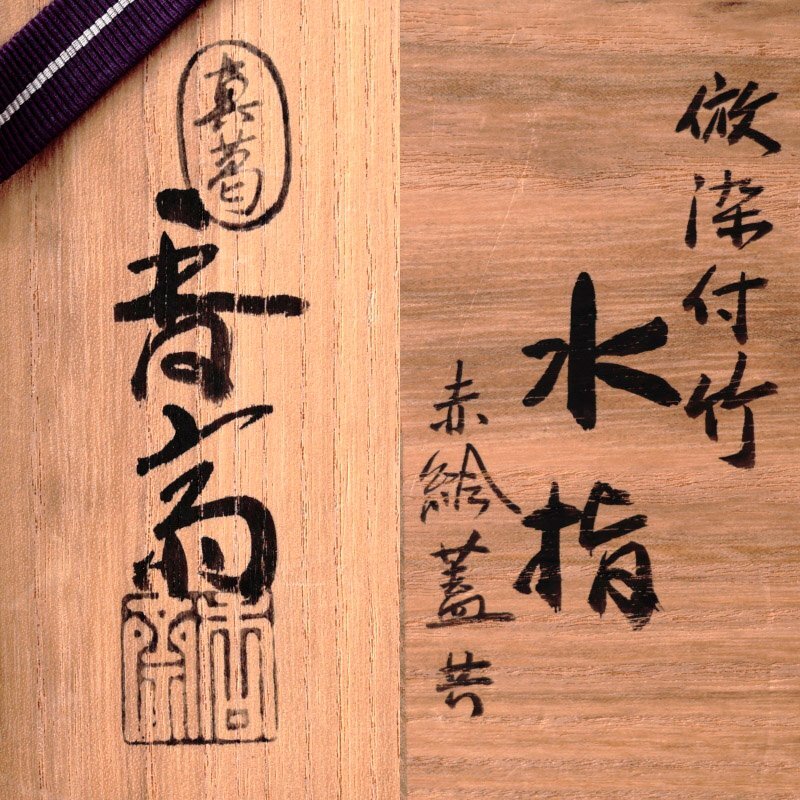 倣染付竹
水指
赤絵蓋共
真葛
香斎
香斎